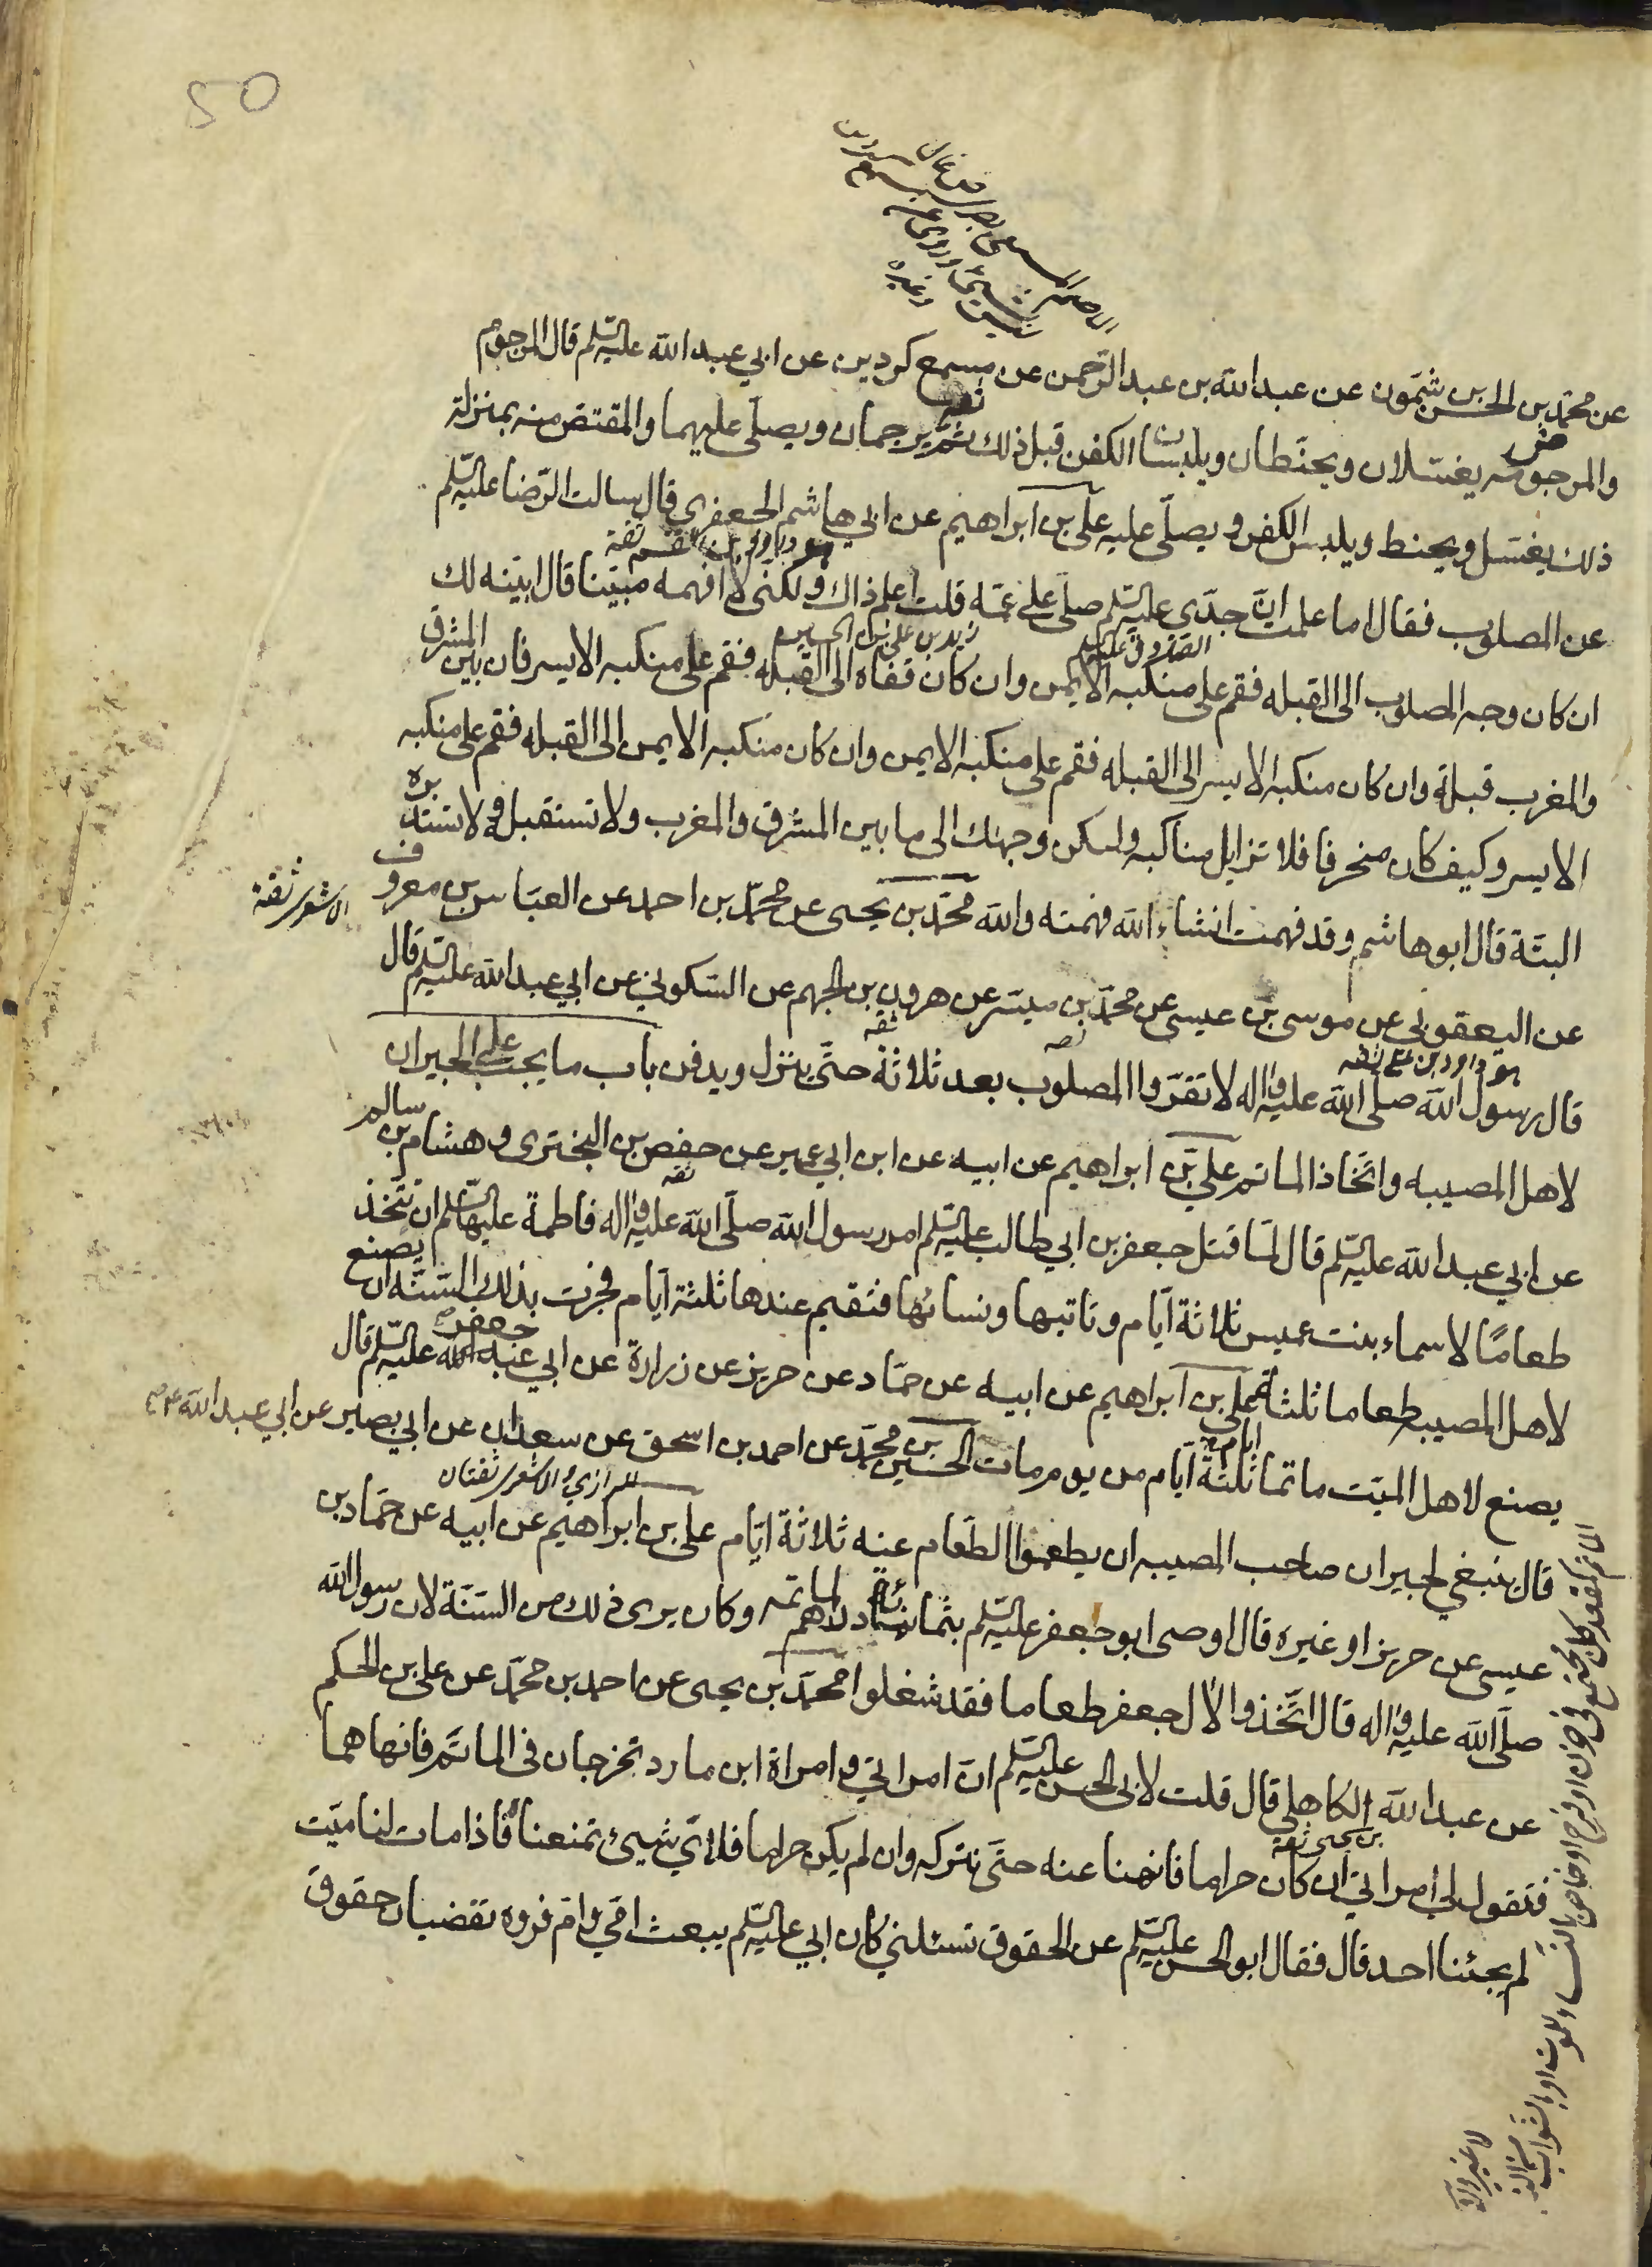 50
عن محمد بن الحسن بن شمون عن عبدالله بن عبد الرحمن عن مسمع كردين عن ابي عبد الله عليه السلم قال المرجوم
والمرجومه يغتسلان ويحنطان ويلبسان الكفن قبل ذلك ثم يرجمان ويصلى عليهما والمقتص منه بمنزلة
ذلك يغتسل ويحنط ويلبس الكفن و يصلى عليه علي بن ابراهيم عن ابي هاشم الجعفري قال سالت الرضا عليه السلم
هو داود بن القسم ثقة
عن المصلوب فقال اما علمت ان جدي عليه السلم صلى على عمه قلت اعلم ذاك ولكنى لا افهمه مبينا قال ابينه لك
الصادق عليه السلم
زيد بن علي بن الحسين
ان كان وجه المصلوب الى القبله فقم على منكبه الايمن وان كان قفاه الى القبله فقم على منكبه الايسر فان بين المشرق
والمغرب قبلة وان كان منكبه الايسر الى القبله فقم على منكبه الايمن وان كان منكبه الايمن الى القبله فقم على منكبه
الايسر وكيف كان منحرفا فلا تزايل مناكبه وليكن وجهك الى ما بين المشرق والمغرب ولا تستقبله ولا تستدبره
البتة قال ابو هاشم وقد فهمت انشاء الله فهمته والله محمد بن يحيى عن محمد بن احمد عن العباس بن معروف
الاشعري ثقة
عن اليعقوبي عن موسى بن عيسى عن محمد بن ميسر عن هرون بن الجهم عن السكوني عن ابي عبد الله عليه السلم قال
هو داود بن علي ثقه
ثقه
ثقه
قال رسول الله صلى الله عليه واله لا تقروا المصلوب بعد ثلاثة حتى ينزل ويدفن باب ما يجب على الجيران
لاهل المصيبه واتخاذ الماتم علي بن ابراهيم عن ابيه عن ابن ابي عمير عن حفص بن البختري و هشام بن سالم
ثقه
عن ابي عبد الله عليه السلم قال لما قتل جعفر بن ابي طالب عليه السلم امر رسول الله صلى الله عليه واله فاطمة عليها السلم ان تتخذ
طعامًا لاسماء بنت عميس ثلاثة ايام و تاتيها و نسائها فتقيم عندها ثلثة ايام فجرت بذلك السنه ان يصنع
لاهل المصيبه طعاما ثلثة علي بن ابراهيم عن ابيه عن حماد عن حريز عن زرارة عن ابي عبد الله عليه السلم قال
جعفر
يصنع لاهل الميت ماتما ثلثة ايام من يوم مات الحسين بن محمد عن احمد بن اسحق عن سعدان عن ابي بصير عن ابي عبد الله عم
الرازي او الاشعري ثقتان
قال ينبغي لجيران صاحب المصيبه ان يطعموا الطعام عنه ثلاثة ايام علي بن ابراهيم عن ابيه عن حماد بن
عيسى عن حريز او غيره قال اوصى ابو جعفر عليه السلم بثمانمائة درهم لماتمه وكان يرى ذلك من السنة لان رسول الله
صلى الله عليه واله قال اتخذوا لال جعفر طعاما فقد شغلوا محمد بن يحيى عن احمد بن محمد عن علي بن الحكم
عن عبد الله الكاهلي قال قلت لابي الحسن عليه السلم ان امراتي و امراة ابن مارد تخرجان في الماتم فانهاهما
بن يحيى ثقه
فتقول لي امراتي ان كان حراما فانهنا عنه حتى نتركه وان لم يكن حراما فلاي شيئ تمنعنا فاذا مات لنا ميت
لم يجئنا احد قال فقال ابو الحسن عليه السلم عن الحقوق تسئلني كان ابي عليه السلم يبعث امي وام فروه تقضيان حقوق
الماتم كمقعد كل مجتمع في حزن او فرح او خاص بالنساء للموت او بالشواب